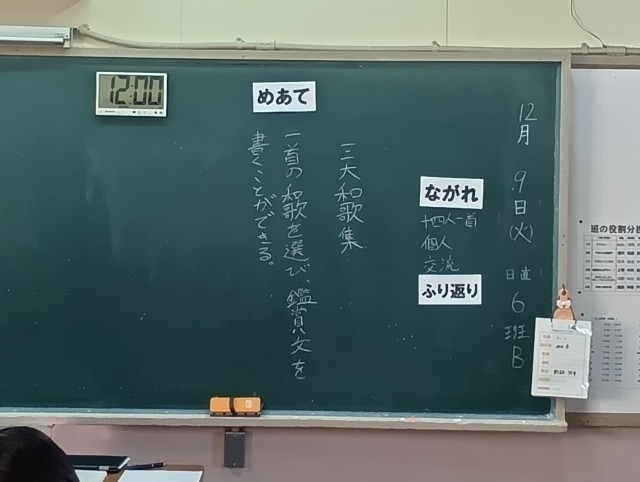 12月9日(火)
日直 6班B
ながれ
十四人一首
個人
交流
ふり返り
三大和歌集
めあて
一首の和歌を選び、鑑賞文を
書くことができる。
12:00